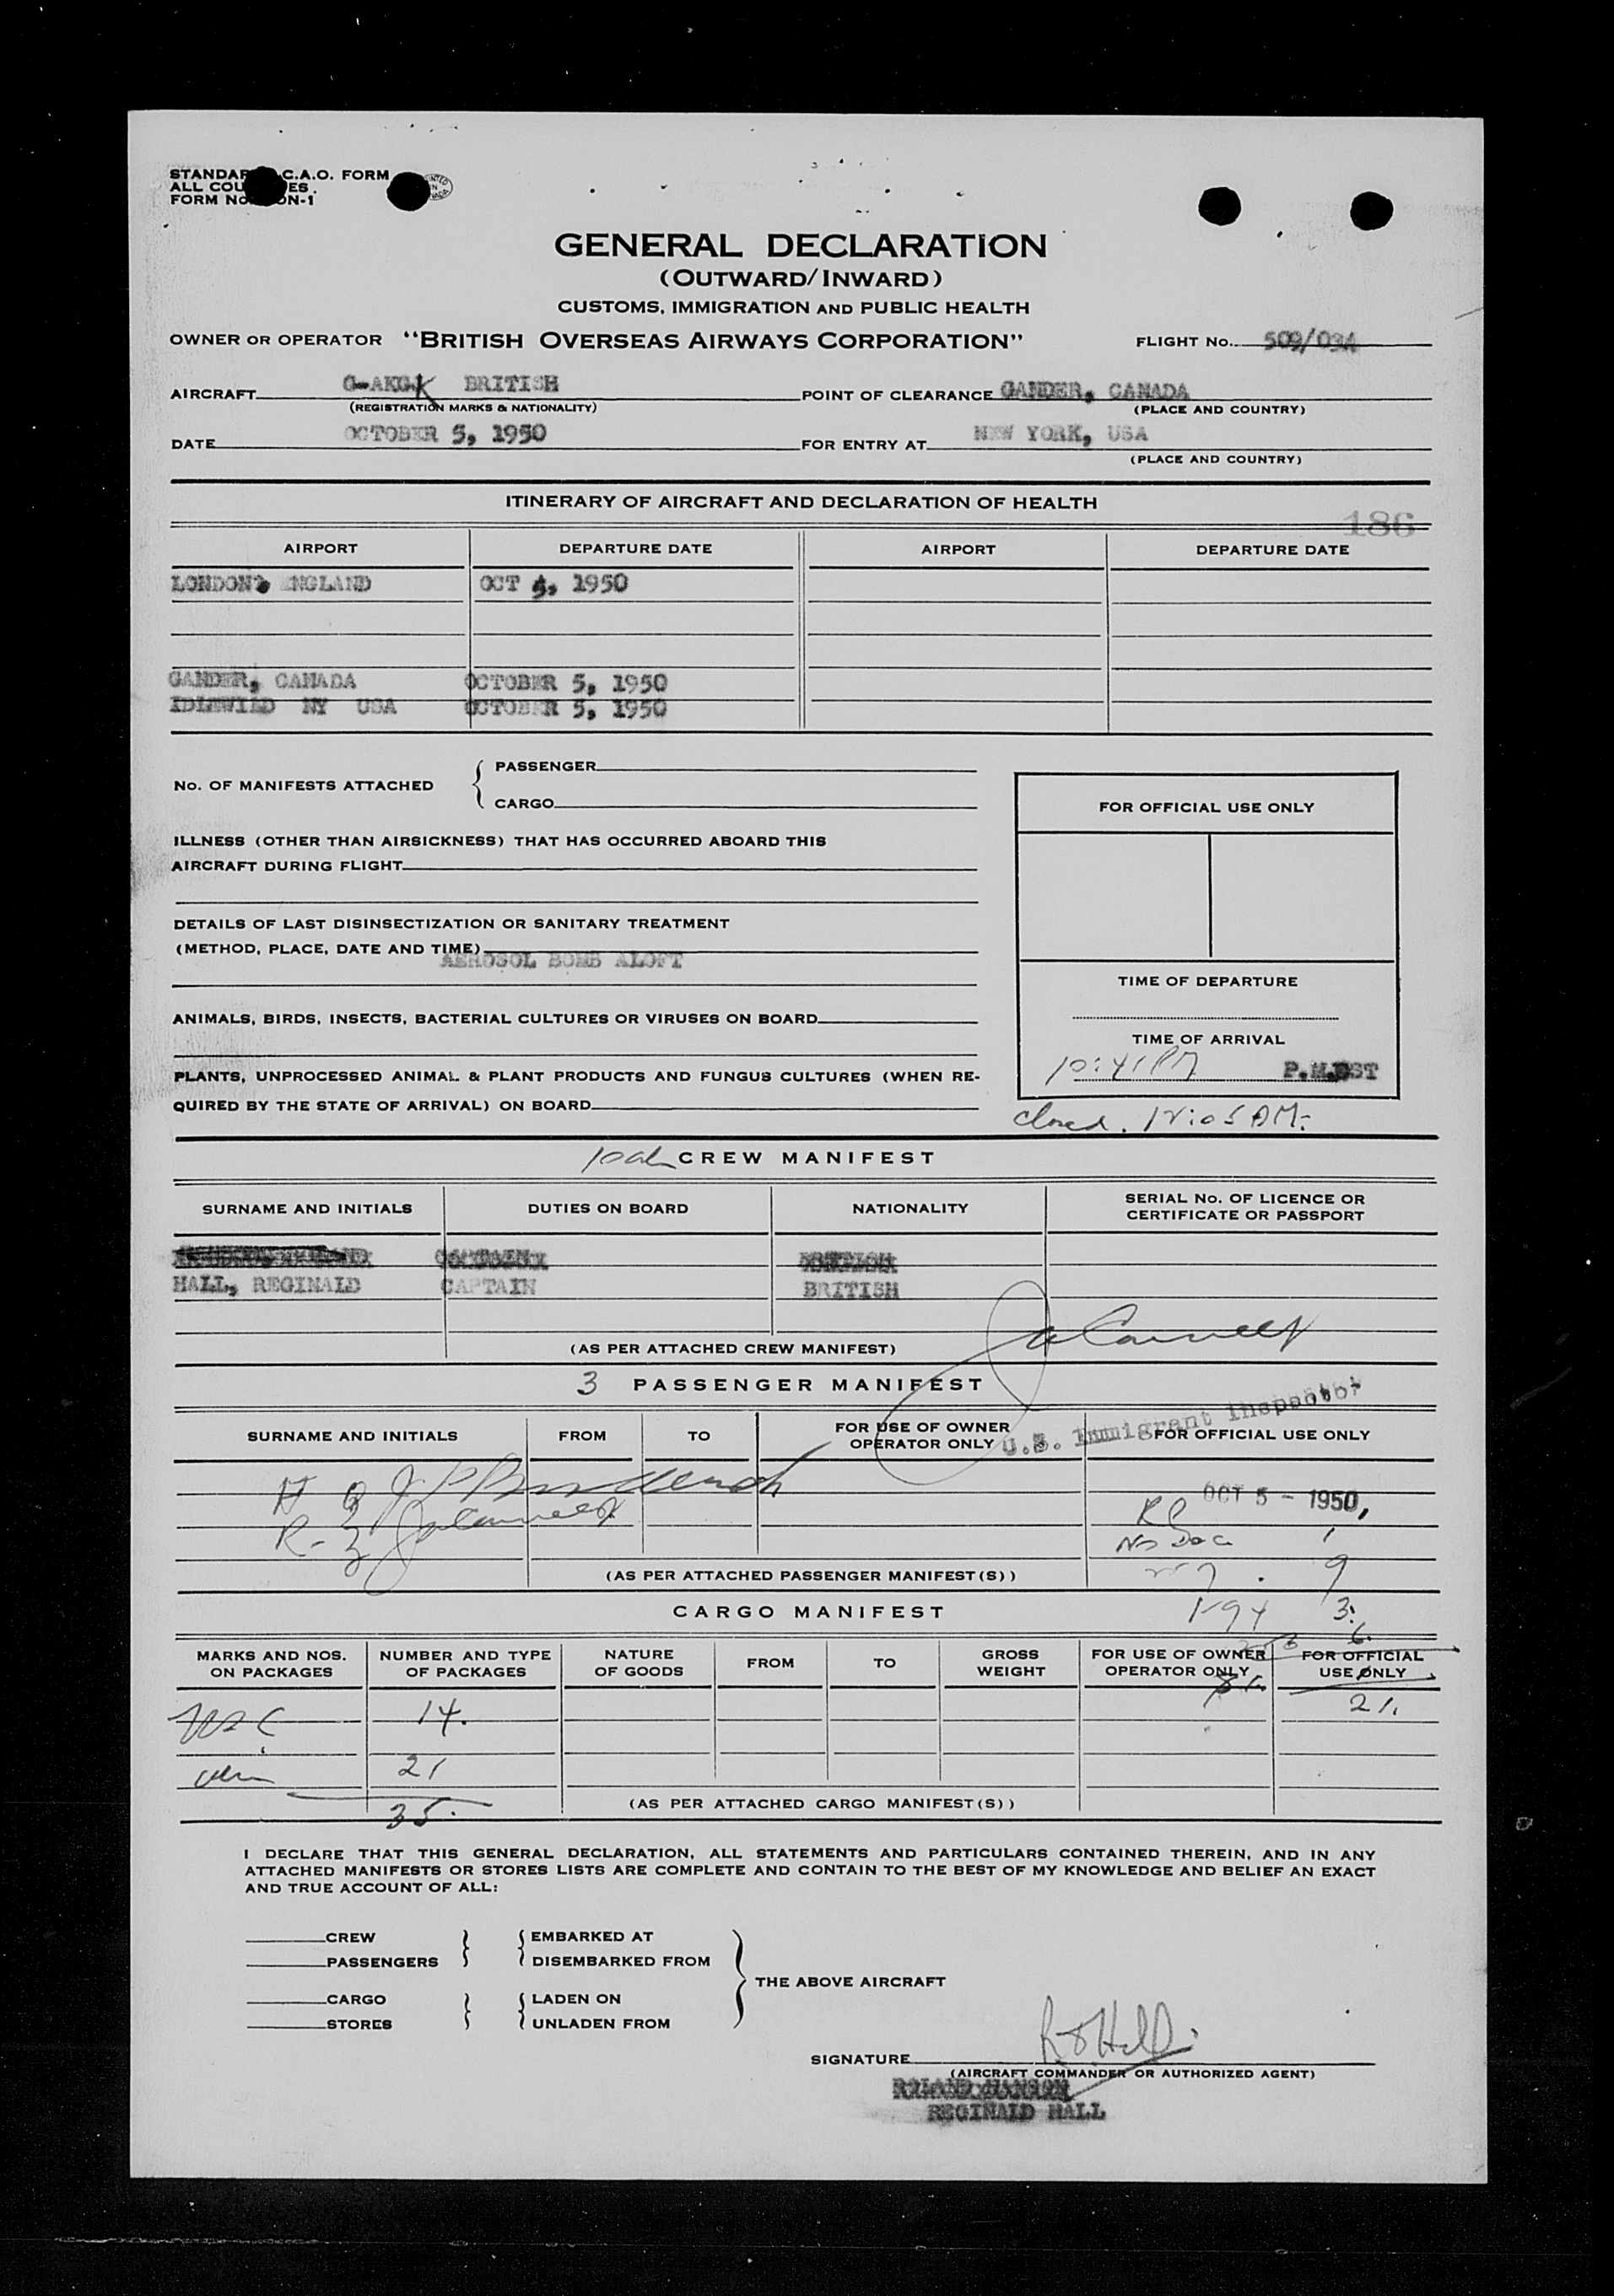 STANDAR C.A.O. FORM
ALL COU ES
FORM No. ON-1
GENERAL DECLARATION
(OUTWARD/INWARD)
CUSTOMS, IMMIGRATION AND PUBLIC HEALTH
OWNER OR OPERATOR "BRITISH OVERSEAS AIRWAYS CORPORATION" FLIGHT No. 509/034
AIRCRAFT G-AKGK BRITISH POINT OF CLEARANCE GANDER, CANADA
(REGISTRATION MARKS & NATIONALITY) (PLACE AND COUNTRY)
DATE OCTOBER 5, 1950 FOR ENTRY AT NEW YORK, USA
(PLACE AND COUNTRY)
ITINERARY OF AIRCRAFT AND DECLARATION OF HEALTH
186
AIRPORT DEPARTURE DATE AIRPORT DEPARTURE DATE
LONDON, ENGLAND OCT 1950
GANDER, CANADA OCTOBER 5, 1950
IDLEWILD NY USA OCTOBER 5, 1950
No. OF MANIFESTS ATTACHED { PASSENGER
CARGO
FOR OFFICIAL USE ONLY
ILLNESS (OTHER THAN AIRSICKNESS) THAT HAS OCCURRED ABOARD THIS
AIRCRAFT DURING FLIGHT
DETAILS OF LAST DISINSECTIZATION OR SANITARY TREATMENT
(METHOD, PLACE, DATE AND TIME)
AEROSOL BOMB ALOFT
TIME OF DEPARTURE
ANIMALS, BIRDS, INSECTS, BACTERIAL CULTURES OR VIRUSES ON BOARD
TIME OF ARRIVAL
10:41 PM P.M. EST
PLANTS, UNPROCESSED ANIMAL & PLANT PRODUCTS AND FUNGUS CULTURES (WHEN RE-
QUIRED BY THE STATE OF ARRIVAL) ON BOARD
Closed. 12:05 AM.
CREW MANIFEST
SURNAME AND INITIALS DUTIES ON BOARD NATIONALITY SERIAL No. OF LICENCE OR
CERTIFICATE OR PASSPORT
HALL, REGINALD CAPTAIN BRITISH
(AS PER ATTACHED CREW MANIFEST)
3 PASSENGER MANIFEST
SURNAME AND INITIALS FROM TO FOR USE OF OWNER
OPERATOR ONLY U.S. Immigrant Inspector FOR OFFICIAL USE ONLY
OCT 5 - 1950
(AS PER ATTACHED PASSENGER MANIFEST(S)) 9
CARGO MANIFEST 1-94 3
MARKS AND NOS.
ON PACKAGES NUMBER AND TYPE
OF PACKAGES NATURE
OF GOODS FROM TO GROSS
WEIGHT FOR USE OF OWNER
OPERATOR ONLY FOR OFFICIAL
USE ONLY
USC 14. 21.
21
35. (AS PER ATTACHED CARGO MANIFEST(S))
I DECLARE THAT THIS GENERAL DECLARATION, ALL STATEMENTS AND PARTICULARS CONTAINED THEREIN, AND IN ANY
ATTACHED MANIFESTS OR STORES LISTS ARE COMPLETE AND CONTAIN TO THE BEST OF MY KNOWLEDGE AND BELIEF AN EXACT
AND TRUE ACCOUNT OF ALL:
CREW } { EMBARKED AT
PASSENGERS DISEMBARKED FROM
} THE ABOVE AIRCRAFT
CARGO } { LADEN ON
STORES UNLADEN FROM
SIGNATURE R Hall
(AIRCRAFT COMMANDER OR AUTHORIZED AGENT)
REGINALD HALL